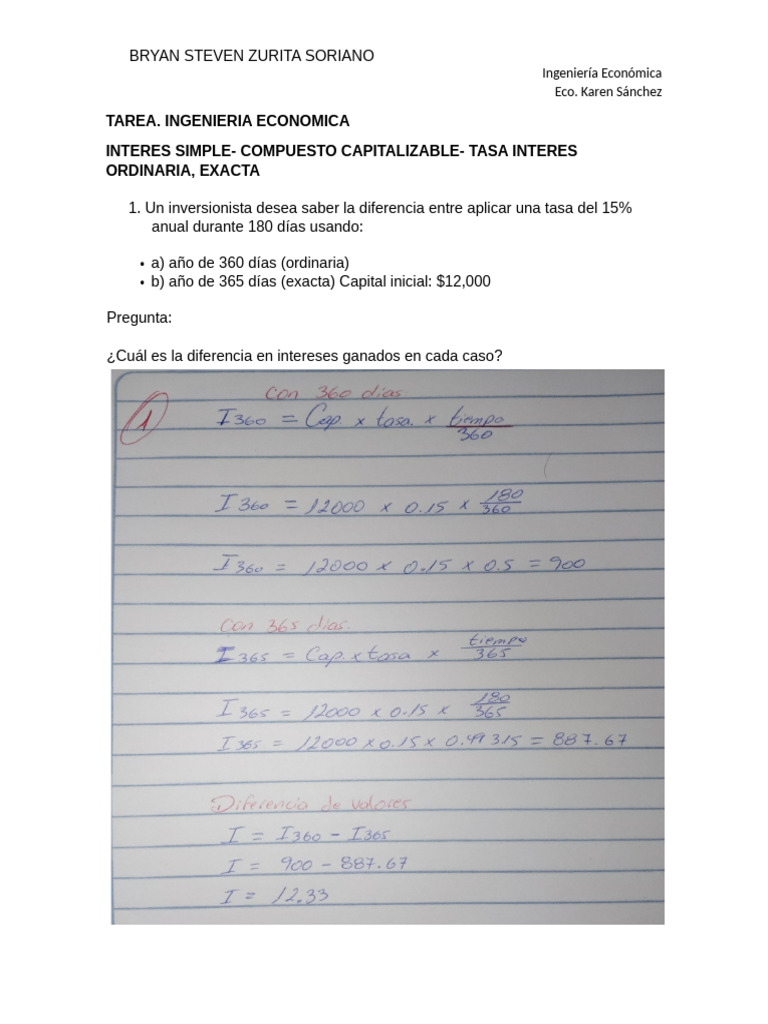 BRYAN STEVEN ZURITA SORIANO
Ingeniería Económica
Eco. Karen Sánchez
TAREA. INGENIERIA ECONOMICA
INTERES SIMPLE- COMPUESTO CAPITALIZABLE- TASA INTERES
ORDINARIA, EXACTA
1. Un inversionista desea saber la diferencia entre aplicar una tasa del 15%
anual durante 180 días usando:
• a) año de 360 días (ordinaria)
• b) año de 365 días (exacta) Capital inicial: $12,000
Pregunta:
¿Cuál es la diferencia en intereses ganados en cada caso?
1
Con 360 dias
I360 = Cap. x tasa. x tiempo/360
I360 = 12000 x 0.15 x 180/360
I360 = 12000 x 0.15 x 0.5 = 900
Con 365 dias.
I365 = Cap. x tasa x tiempo/365
I365 = 12000 x 0.15 x 180/365
I365 = 12000 x 0.15 x 0.49315 = 887.67
Diferencia de valores
I = I360 - I365
I = 900 - 887.67
I = 12.33